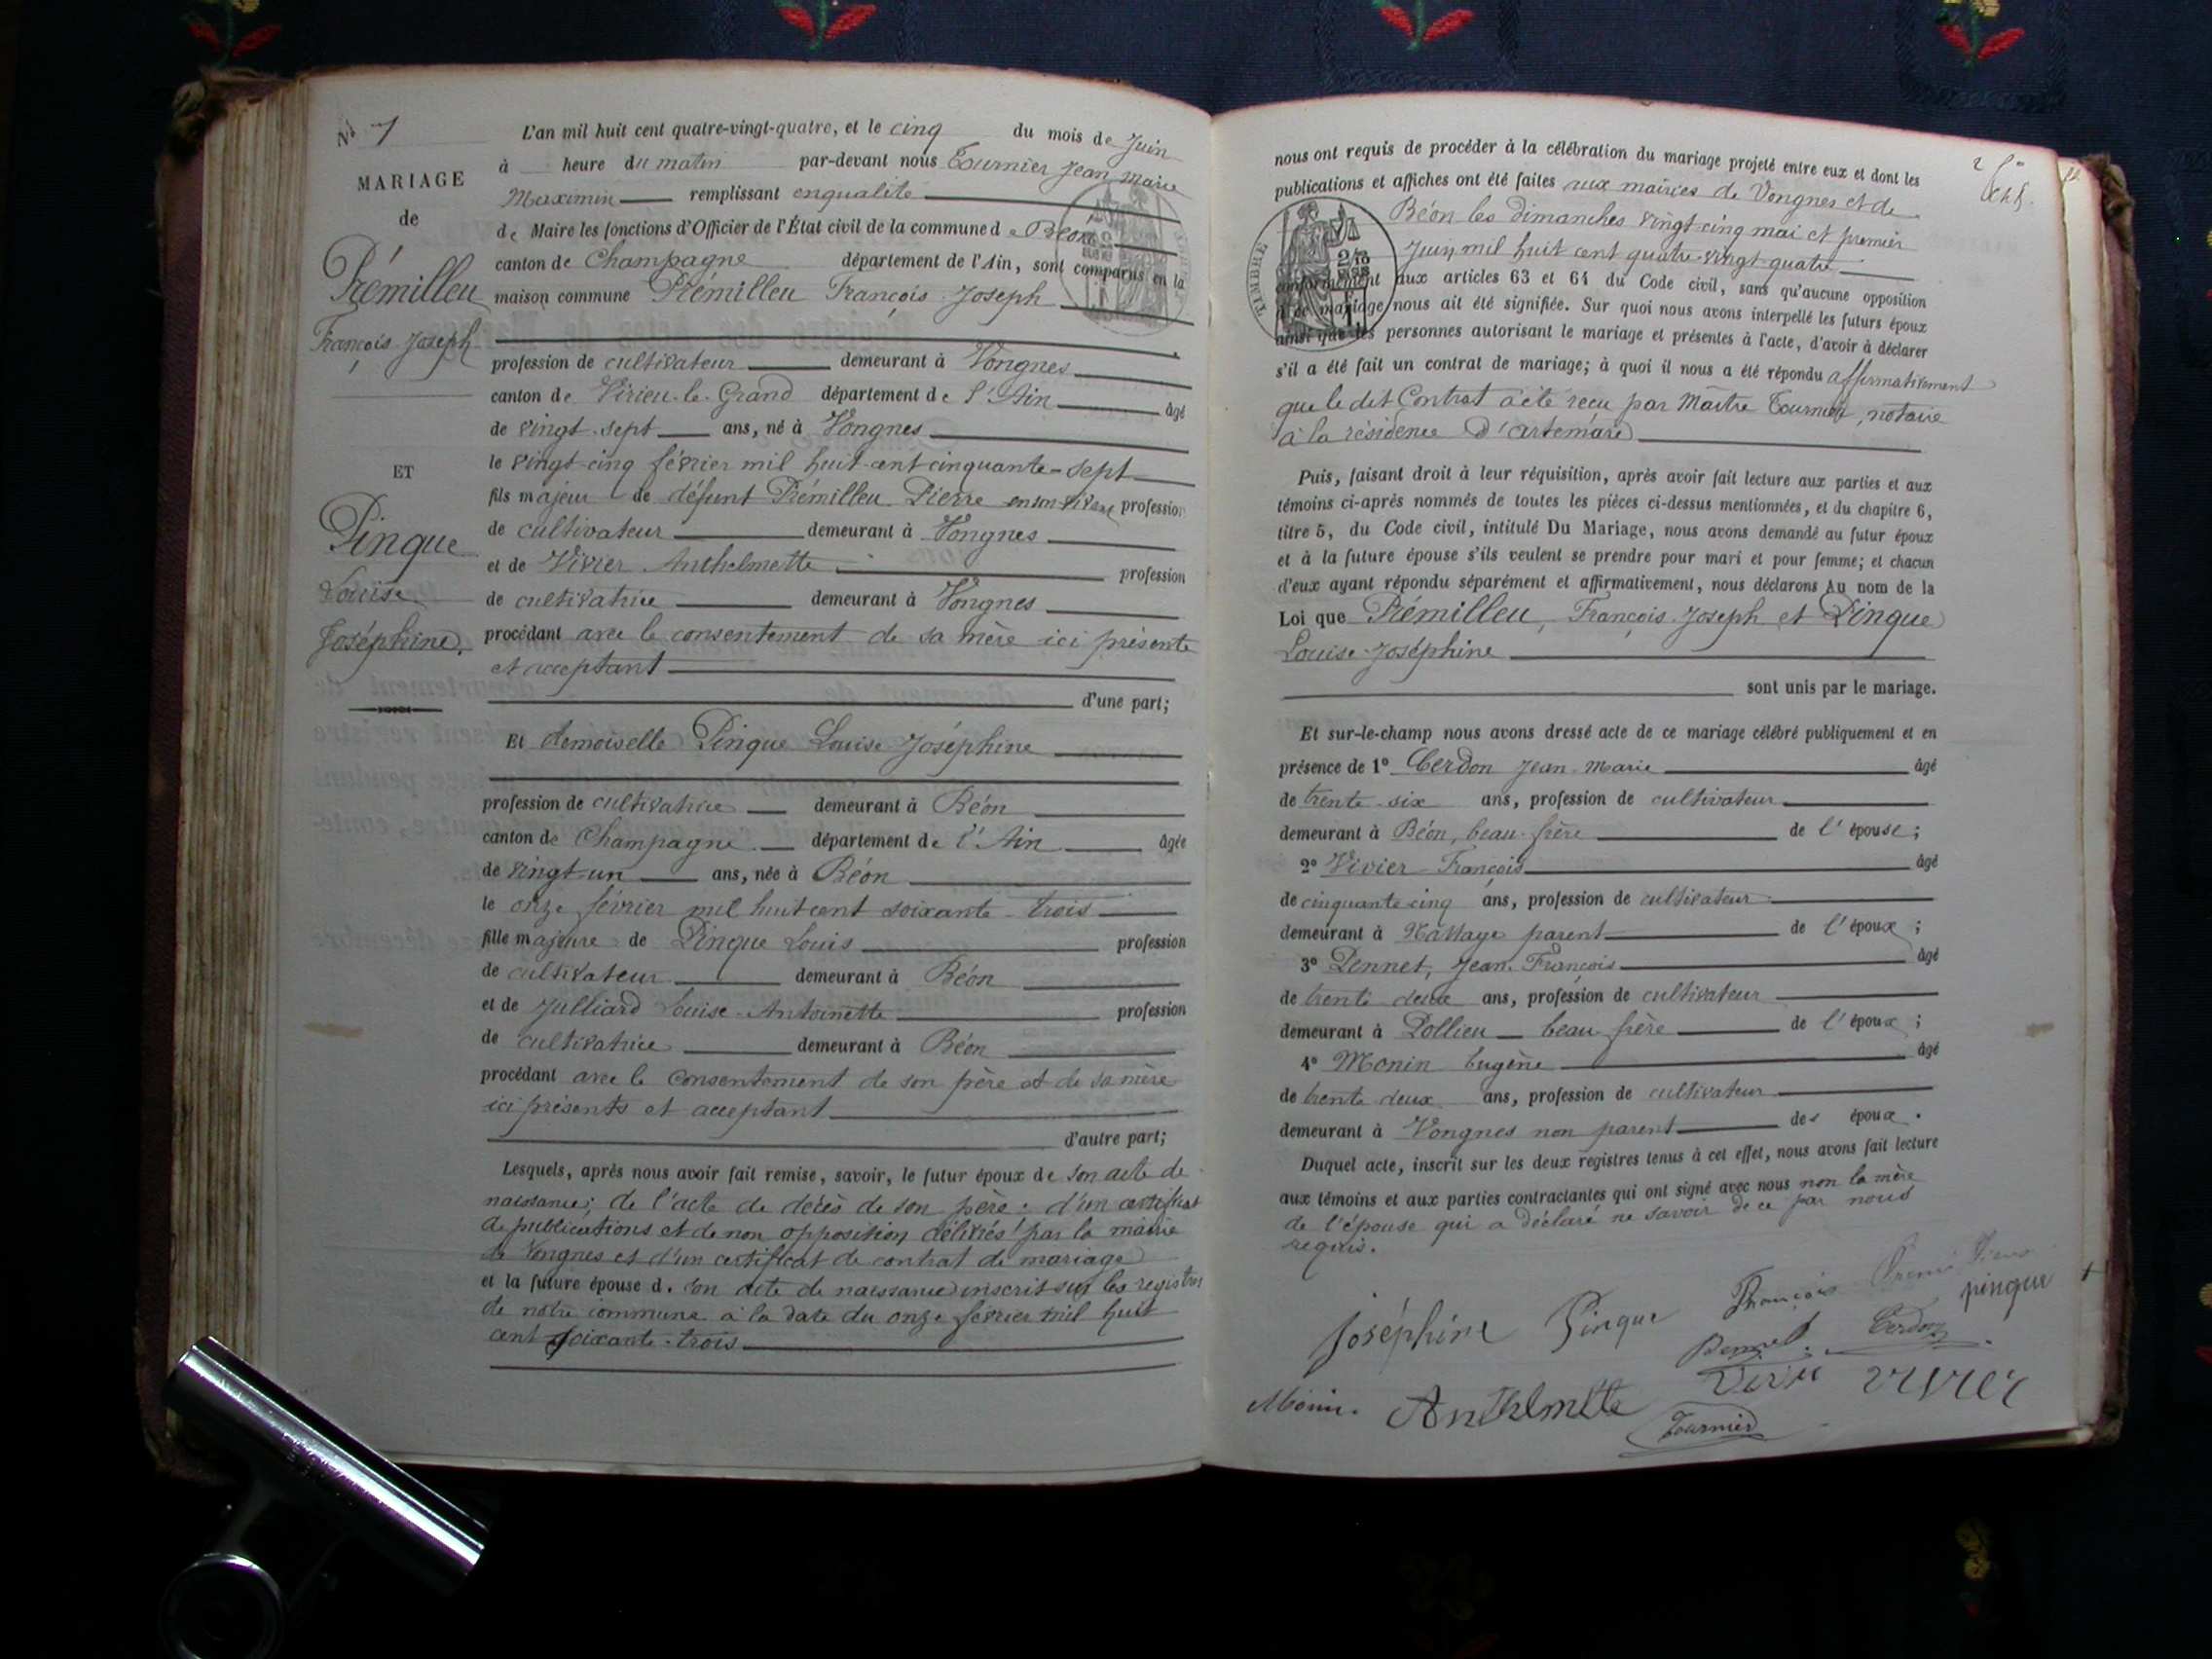 N° 1
MARIAGE
de
Prémilleu
François Joseph
ET
Pinque
Louise
Joséphine.
L'an mil huit cent quatre-vingt-quatre, et le cinq du mois de Juin
à heure du matin par-devant nous Tournier Jean Marie
Maximin remplissant en qualité
de Maire les fonctions d'Officier de l'État civil de la commune de Béon
canton de Champagne département de l'Ain, sont comparus en la
maison commune Prémilleu François Joseph
profession de cultivateur demeurant à Vongnes
canton de Virieu-le-Grand département de l'Ain âgé
de vingt-sept ans, né à Vongnes
le vingt-cinq février mil huit cent cinquante-sept
fils majeur de défunt Prémilleu Pierre en son vivant profession
de cultivateur demeurant à Vongnes
et de Vivier Anthelmette profession
de cultivatrice demeurant à Vongnes
procédant avec le consentement de sa mère ici présente
et acceptant
d'une part;
Et demoiselle Pinque Louise Joséphine
profession de cultivatrice demeurant à Béon
canton de Champagne département de l'Ain âgée
de vingt-un ans, née à Béon
le onze février mil huit cent soixante-trois
fille majeure de Pinque Louis profession
de cultivateur demeurant à Béon
et de Julliard Louise-Antoinette profession
de cultivatrice demeurant à Béon
procédant avec le consentement de son père et de sa mère
ici présents et acceptant
d'autre part;
Lesquels, après nous avoir fait remise, savoir, le futur époux de son acte de
naissance; de l'acte de décès de son père; d'un certificat
de publications et de non opposition délivrés par la mairie
de Vongnes et d'un certificat de contrat de mariage
et la future épouse d. son acte de naissance inscrit sur les registres
de notre commune à la date du onze février mil huit
cent soixante-trois
nous ont requis de procéder à la célébration du mariage projeté entre eux et dont les
publications et affiches ont été faites aux mairies de Vongnes et de
Béon les dimanches vingt-cinq mai et premier
Juin mil huit cent quatre-vingt-quatre
TIMBRE
conformément aux articles 63 et 64 du Code civil, sans qu'aucune opposition
à ce mariage nous ait été signifiée. Sur quoi nous avons interpellé les futurs époux
ainsi que les personnes autorisant le mariage et présentes à l'acte, d'avoir à déclarer
s'il a été fait un contrat de mariage; à quoi il nous a été répondu affirmativement
que le dit Contrat a été reçu par Maître Tournier, notaire
à la résidence d'Artemare
Puis, faisant droit à leur réquisition, après avoir fait lecture aux parties et aux
témoins ci-après nommés de toutes les pièces ci-dessus mentionnées, et du chapitre 6,
titre 5, du Code civil, intitulé Du Mariage, nous avons demandé au futur époux
et à la future épouse s'ils veulent se prendre pour mari et pour femme; et chacun
d'eux ayant répondu séparément et affirmativement, nous déclarons Au nom de la
Loi que Prémilleu, François Joseph et Pinque
Louise-Joséphine
sont unis par le mariage.
Et sur-le-champ nous avons dressé acte de ce mariage célébré publiquement et en
présence de 1° Cerdon Jean-Marie âgé
de trente-six ans, profession de cultivateur
demeurant à Béon, beau-frère de l'épouse;
2° Vivier François âgé
de cinquante cinq ans, profession de cultivateur
demeurant à parent de l'époux;
3° Pennet, Jean François âgé
de trente deux ans, profession de cultivateur
demeurant à Pollieu beau frère de l'époux;
4° Monin Eugène âgé
de trente-deux ans, profession de cultivateur
demeurant à Vongnes non parent des époux.
Duquel acte, inscrit sur les deux registres tenus à cet effet, nous avons fait lecture
aux témoins et aux parties contractantes qui ont signé avec nous non la mère
de l'épouse qui a déclaré ne savoir de ce par nous
requis.
Joséphine Pinque François pinque
Pennet Cerdon
Monin. Anthelmette Vivier vivier
Tournier